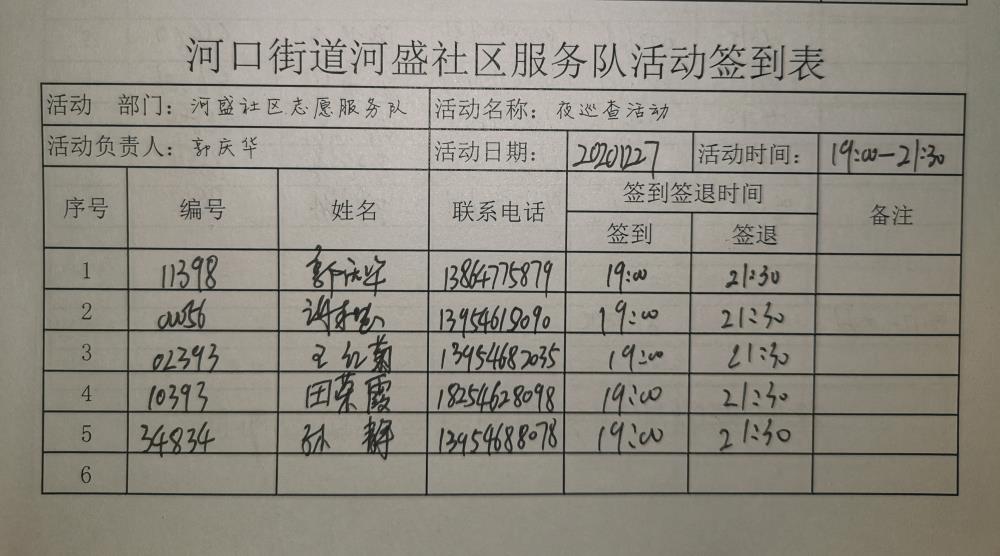 河口街道河盛社区服务队活动签到表
活动 部门：河盛社区志愿服务队 活动名称：夜巡查活动
活动负责人：郭庆华 活动日期：20201227 活动时间：19:00-21:30
序号 编号 姓名 联系电话 签到签退时间 备注
签到 签退
1 11398 郭庆华 13864775879 19:00 21:30
2 19:00 21:30
3 02393 王红菊 13954682035 19:00 21:30
4 10393 田荣霞 18254628098 19:00 21:30
5 34834 孙静 13954688078 19:00 21:30
6